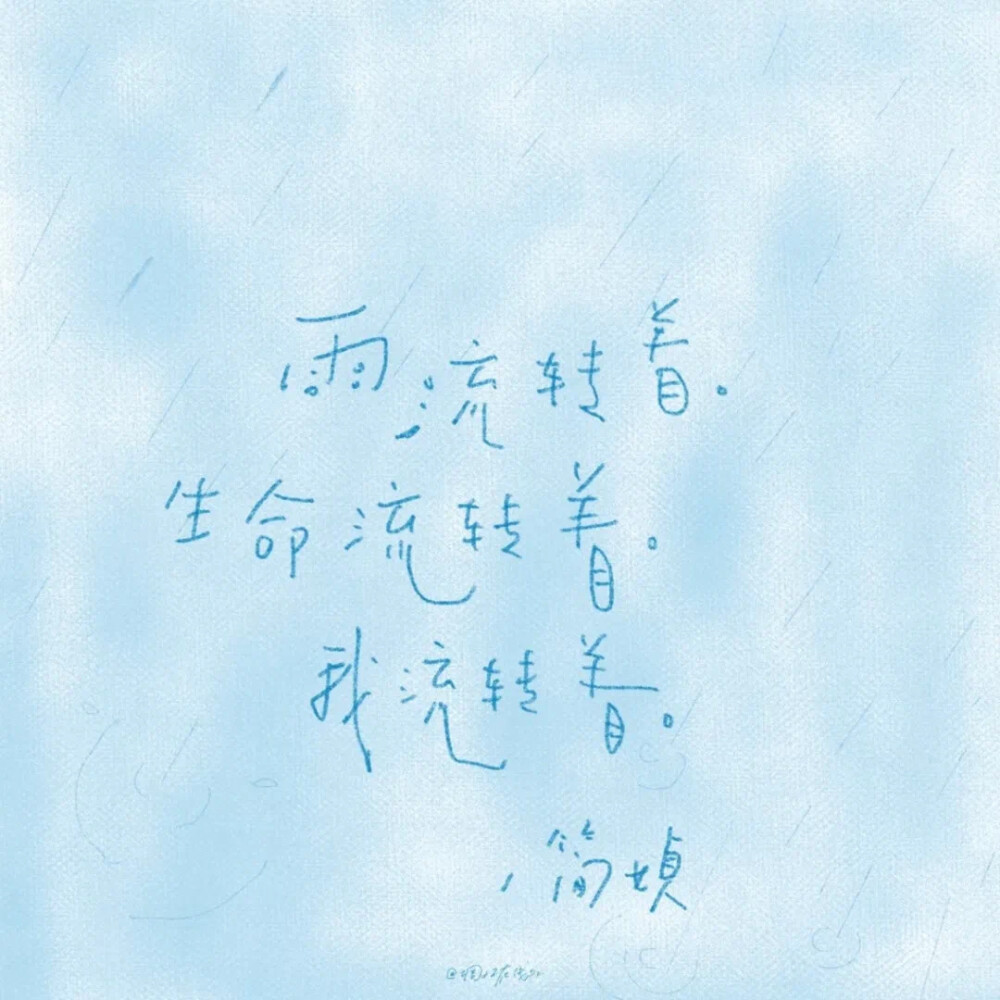 雨流转着。
生命流转着。
我流转着。
,简媜